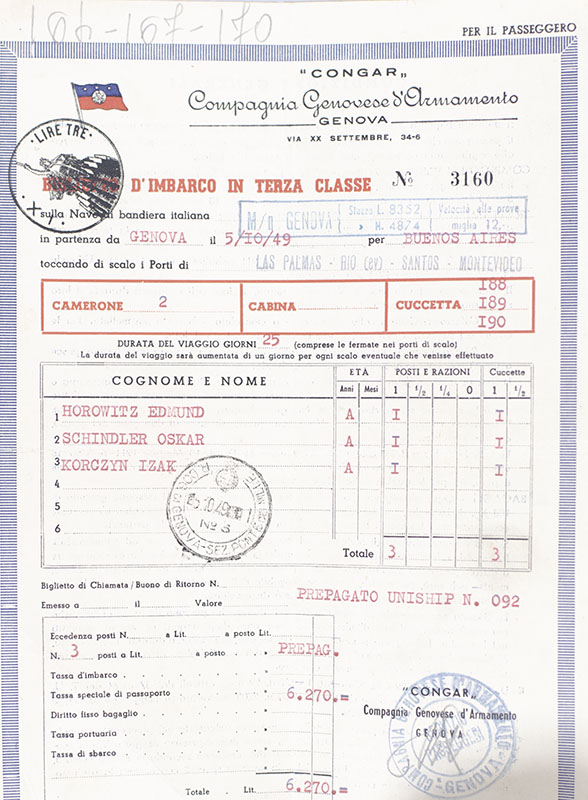 166-167-170
PER IL PASSEGGERO
"CONGAR"
Compagnia Genovese d'Armamento
GENOVA
VIA XX SETTEMBRE, 34-6
LIRE TRE
D'IMBARCO IN TERZA CLASSE Nº 3160
sulla Nave di bandiera italiana M/n GENOVA Stazza L. 8352 Velocità alle prove
» N. 4874 miglia 12,
in partenza da GENOVA il 5/IO/49 per BUENOS AIRES
toccando di scalo i Porti di LAS PALMAS - RIO (ev) - SANTOS - MONTEVIDEO
CAMERONE 2 CABINA CUCCETTA I88
I89
I90
DURATA DEL VIAGGIO GIORNI 25 (comprese le fermate nei porti di scalo)
La durata del viaggio sarà aumentata di un giorno per ogni scalo eventuale che venisse effettuato
COGNOME E NOME ETÀ POSTI E RAZIONI Cuccette
Anni Mesi 1 1/2 1/4 0 1 1/2
1 HOROWITZ EDMUND A I I
2 SCHINDLER OSKAR A I I
3 KORCZYN IZAK A I I
4
5
6
Totale 3 3
GENOVA-SEZ.
No 3
Biglietto di Chiamata/Buono di Ritorno N.
Emesso a il Valore PREPAGATO UNISHIP N. 092
Eccedenza posti N. a Lit. a posto Lit.
N. 3 posti a Lit. a posto " PREPAG.
Tassa d'imbarco "
Tassa speciale di passaporto " 6.270.=
Diritto fisso bagaglio "
Tassa portuaria "
Tassa di sbarco "
Totale Lit. 6.270.=
"CONGAR"
Compagnia Genovese d'Armamento
GENOVA
COMPAGNIA GENOVESE D'ARMAMENTO
GENOVA